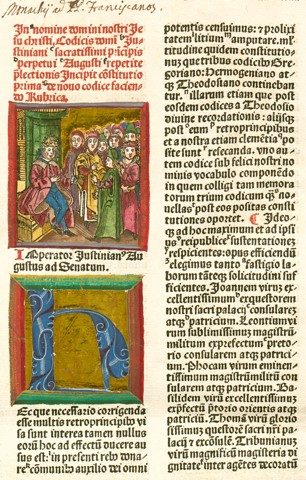 Monachij ad PP. Franciscanos.
In nomine domini nostri Je
su christi, Codicis domini Ju
stiniani sacratissimi prīcipis
perpetui Augusti repetite
plectionis Incipit cōstitutio
prima de nouo codice faciēn
do Rubrica.
Imperator Justinian⁹ Au
gustus ad Senatum.
H
Ec que necessario corrigenda
esse multis retroprincipib⁹ vi
sa sunt interea tamen nullus
eorū hoc ad effectū ducere au
sus est: in presenti reb⁹ dona-
re cōmunib⁹ auxilio dei omni
potentis censuimus: et prolixi
tatem litium amputare. m̄l
titudine quidem constitutio
num que tribus codicib⁹ Gre
goriano: Hermogeniano at-
qꝫ Theodosiano continebanc
tur. illarum etiam que post
eosdem codices a Theodosio
diuine recordationis: alijsqꝫ
post eum retroprincipibus
et a nostra etiam clemētia po
site sunt resecanda. vno au-
tem codice sub felici nostri no
minis vocabulo componēdo
in quem colligi tam memora
torum trium codicum qꝫ no-
uellas post eos positas consti
tutiones oportet. ¶ Ideo-
qꝫ ad hoc maximum et ad ipsi
us reipublice sustentationez
respicientes: opus efficiendū
elegimus tanto fastigio la
borum tāteqꝫ solicitudini suf
ficientes. Joannem virum ex-
cellentissimum exquestorem
nostri sacri palacij consularez
atqꝫ patricium. Leontium vi
rum sublimissimum magistrū
militum exprefectum preto-
rio consularem atqꝫ patrici-
um. Phocam virum eminen-
tissimum magistrū militū con
sularem atqꝫ patricium. Ba
silidem virū excellentissimū
exp̄fectū p̄torio orientis atqꝫ
patriciū. Thomā virū glorio
sissimū questorē sacri nr̄i pa-
lacij et excōsulē. Tribunianū
virū magnificū magisteria di
gnitate inter agētes decoratū